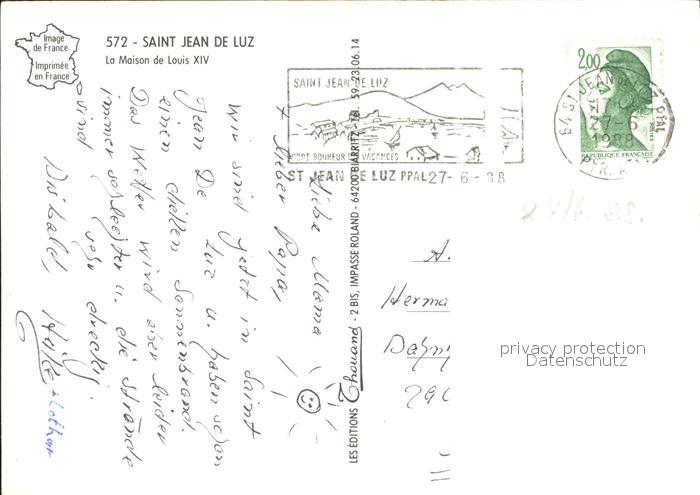 Image
de France
Imprimée
en France
572 - SAINT JEAN DE LUZ
La Maison de Louis XIV
Liebe Mama
+ lieber Papa,
Wir sind jetzt in Saint
Jean De Luz u. haben schon
einen dicken Sonnenbrand.
Das Wetter wird aber leider
immer schlechter u. die Strände
sind sehr dreckig.
Bis bald, Heike + Lothar
LES ÉDITIONS Chouand - 2 BIS, IMPASSE ROLAND - 64200 BIARRITZ - TÉL. 59-23.06.14
SAINT JEAN DE LUZ
PORT BONHEUR DES VACANCES
ST JEAN DE LUZ PPAL 27-6-88
2,00
64 ST JEAN DE LUZ PPAL
27-6
1988
REPUBLIQUE FRANÇAISE
27/6 88.
A.
Herma
290
privacy protection
Datenschutz